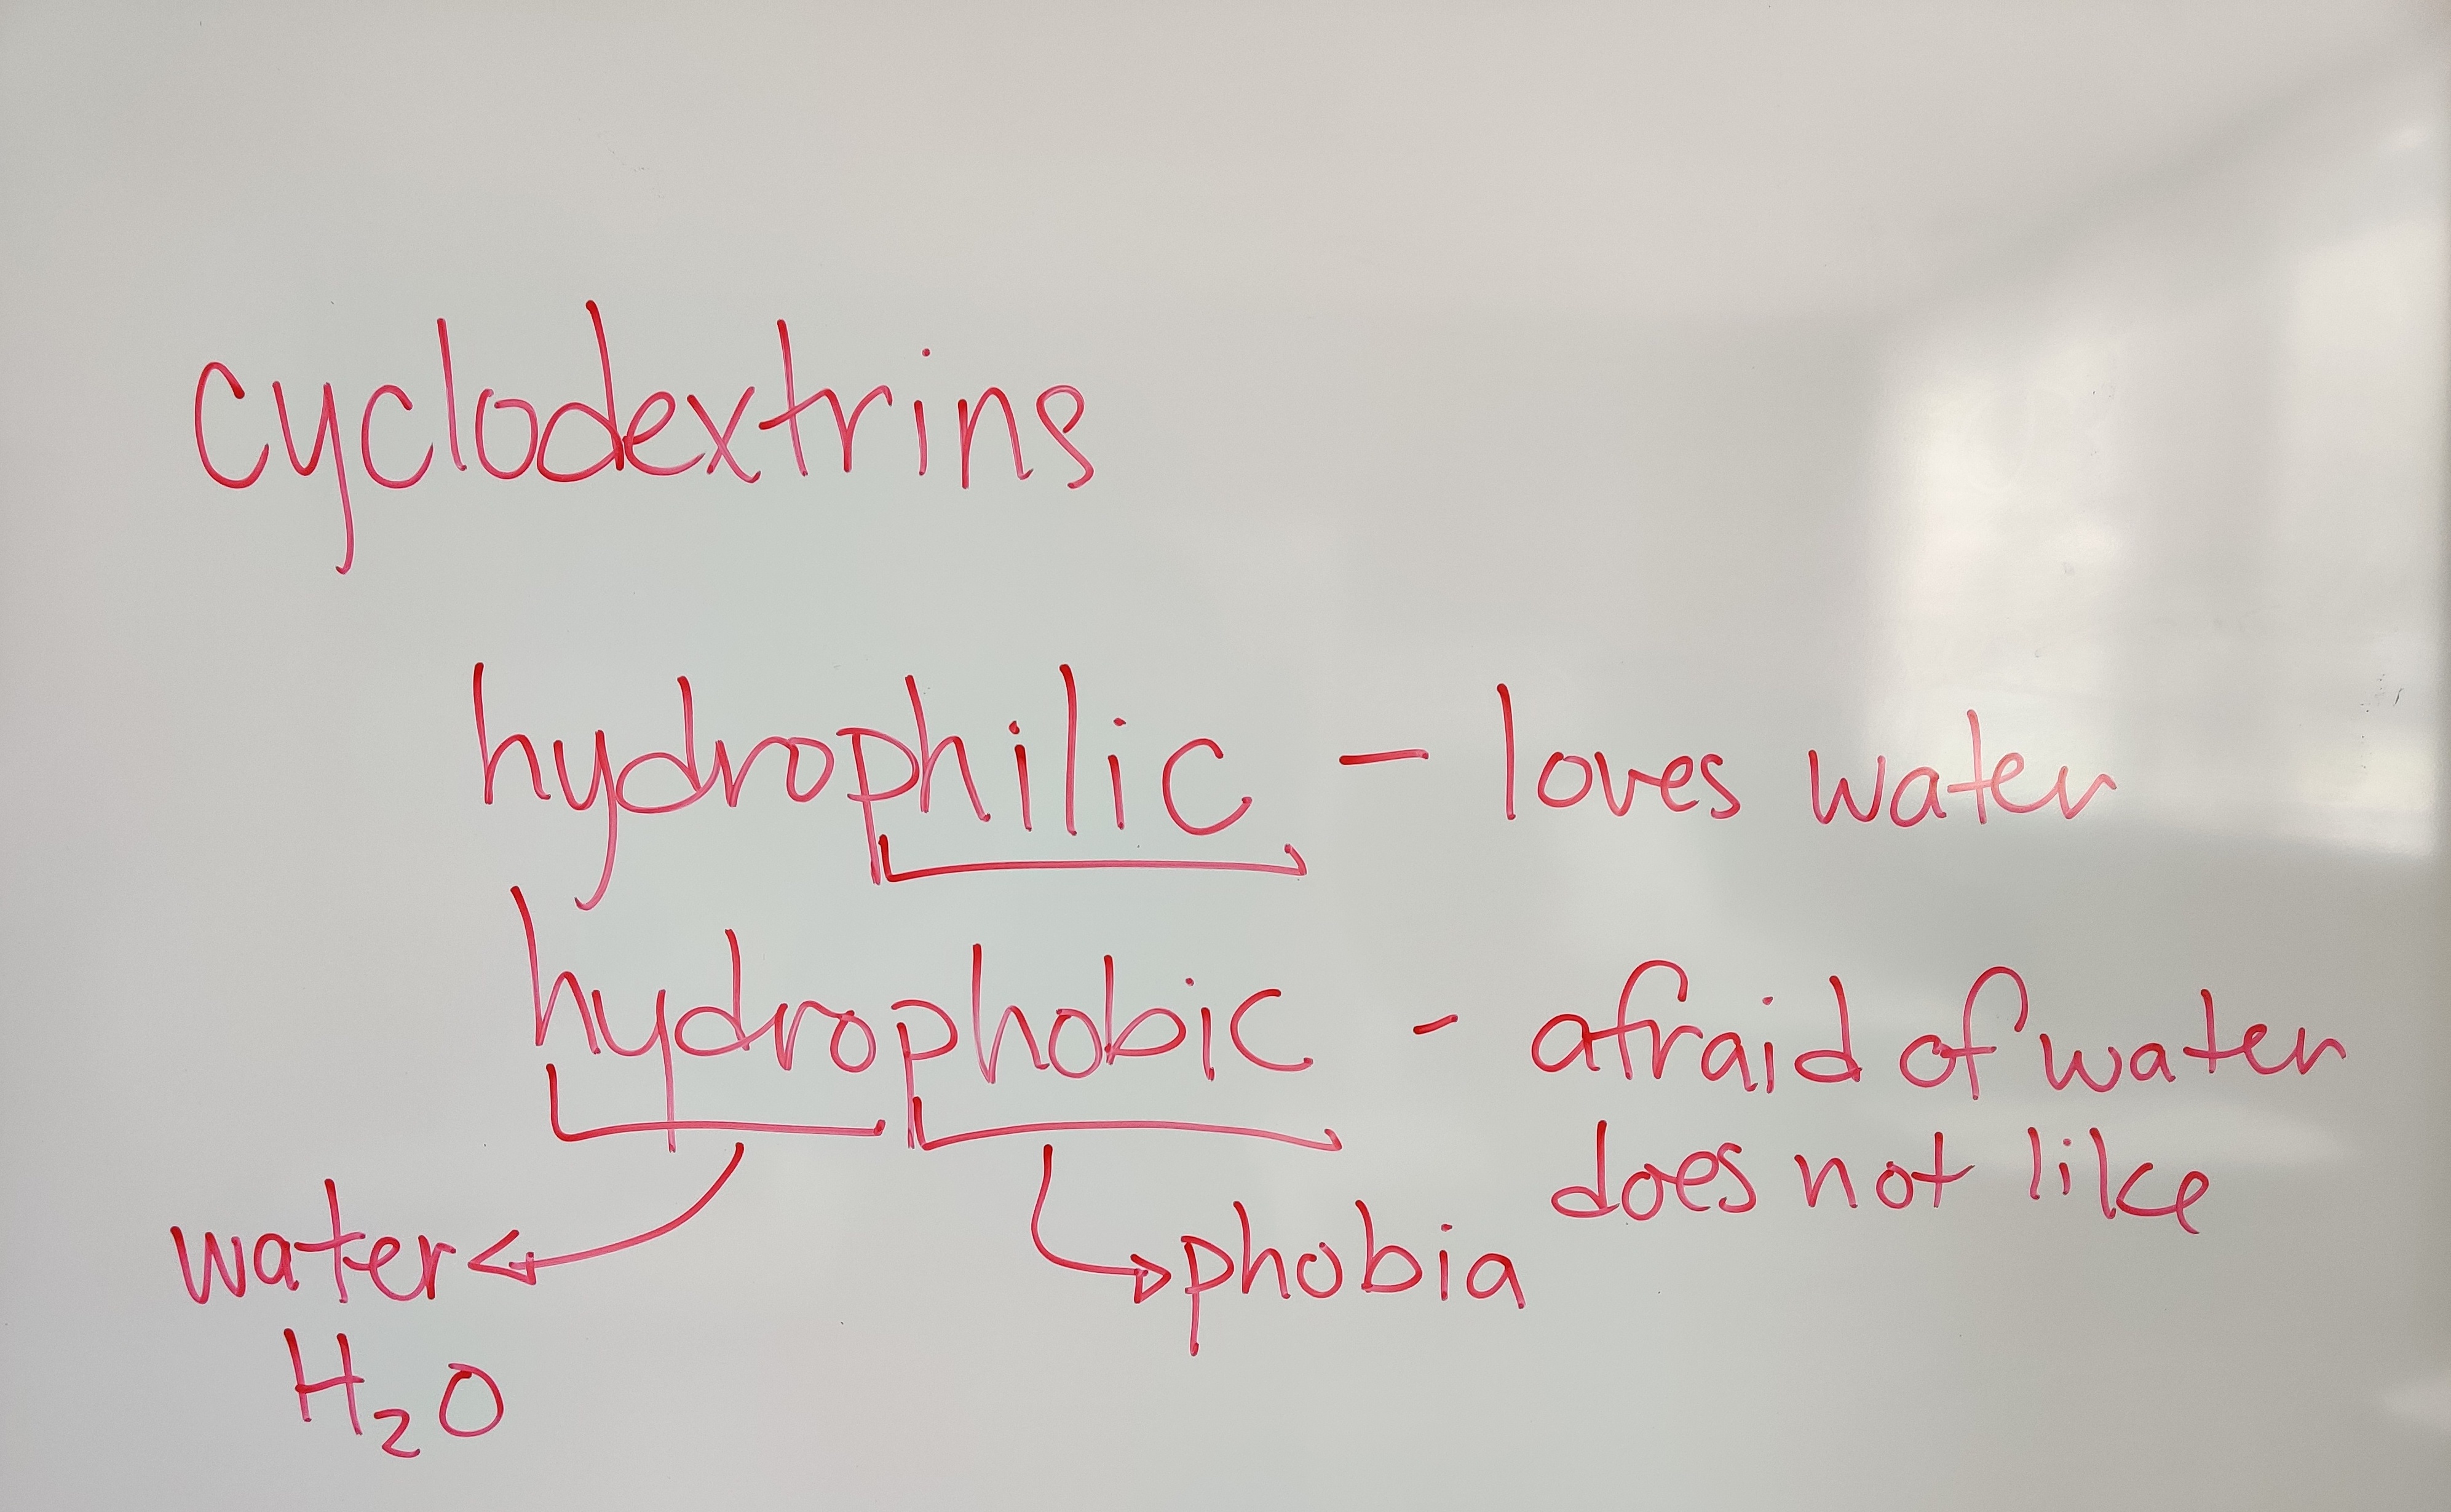 cyclodextrins
hydrophilic - loves water
hydrophobic - afraid of water
does not like
water phobia
H₂O